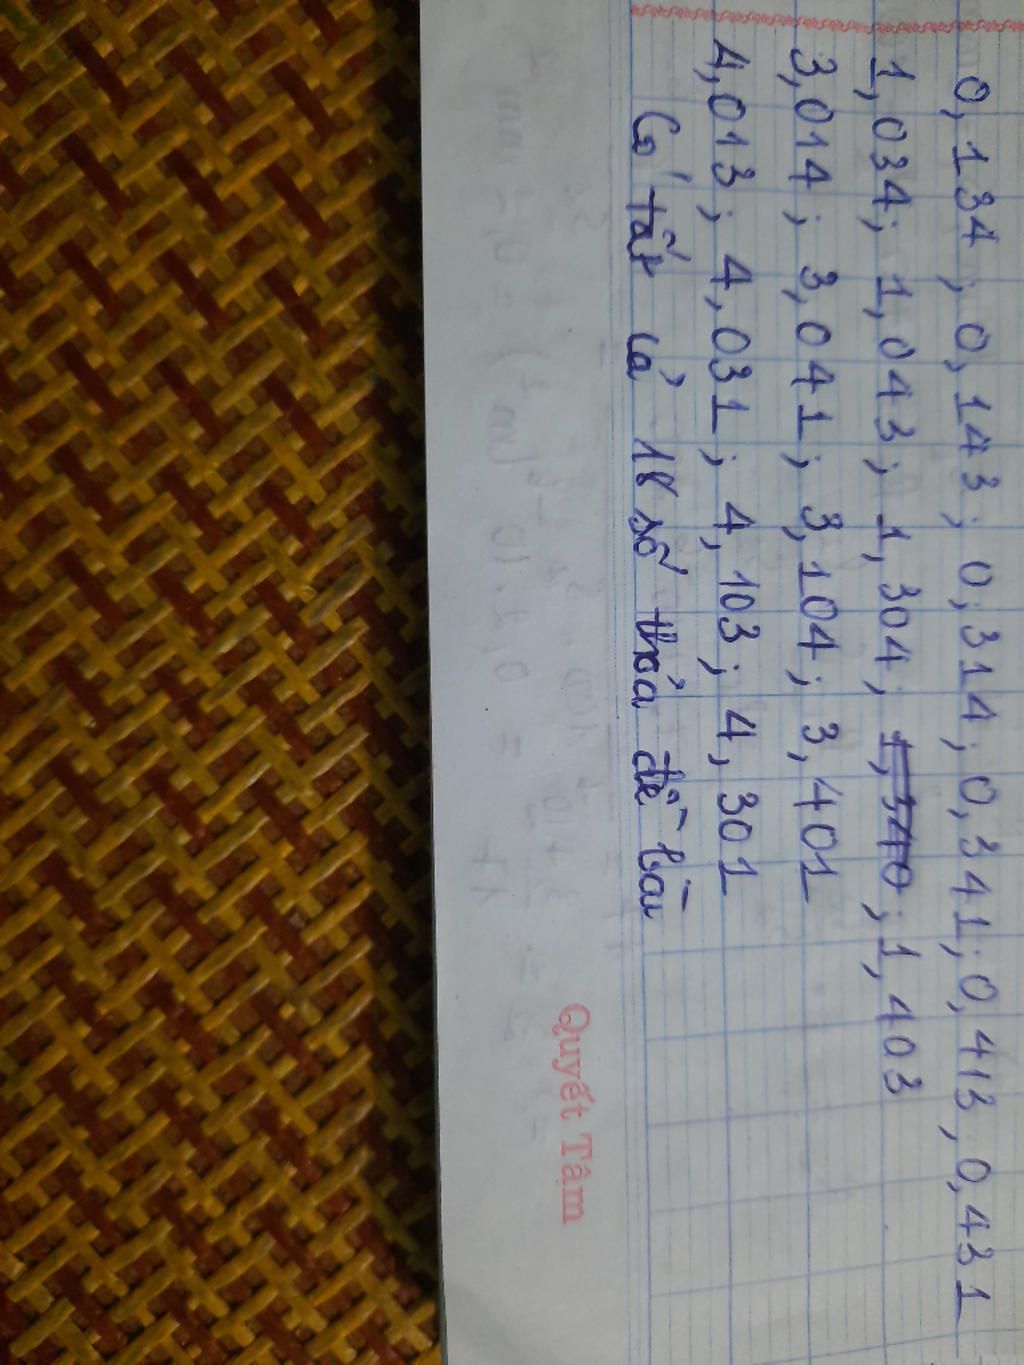 0,134; 0,143; 0,314; 0,341; 0,413, 0,431
1,034; 1,043; 1,304; 1,340; 1,403
3,014; 3,041; 3,104; 3,401
4,013; 4,031; 4,103; 4,301
Có tất cả 18 số thỏa đề bài
Quyết Tâm